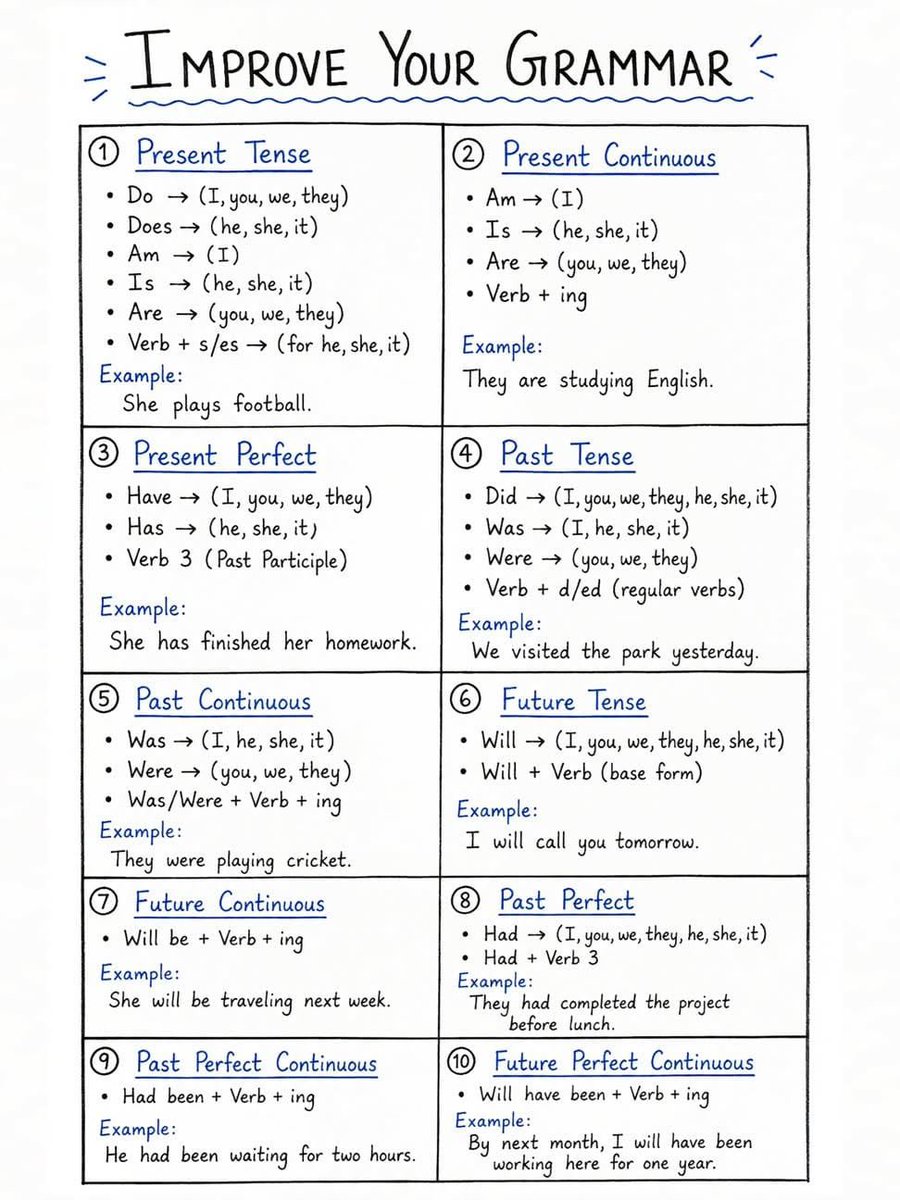 IMPROVE YOUR GRAMMAR
① Present Tense
• Do → (I, you, we, they)
• Does → (he, she, it)
• Am → (I)
• Is → (he, she, it)
• Are → (you, we, they)
• Verb + s/es → (for he, she, it)
Example:
She plays football.
② Present Continuous
• Am → (I)
• Is → (he, she, it)
• Are → (you, we, they)
• Verb + ing
Example:
They are studying English.
③ Present Perfect
• Have → (I, you, we, they)
• Has → (he, she, it)
• Verb 3 (Past Participle)
Example:
She has finished her homework.
④ Past Tense
• Did → (I, you, we, they, he, she, it)
• Was → (I, he, she, it)
• Were → (you, we, they)
• Verb + d/ed (regular verbs)
Example:
We visited the park yesterday.
⑤ Past Continuous
• Was → (I, he, she, it)
• Were → (you, we, they)
• Was/Were + Verb + ing
Example:
They were playing cricket.
⑥ Future Tense
• Will → (I, you, we, they, he, she, it)
• Will + Verb (base form)
Example:
I will call you tomorrow.
⑦ Future Continuous
• Will be + Verb + ing
Example:
She will be traveling next week.
⑧ Past Perfect
• Had → (I, you, we, they, he, she, it)
• Had + Verb 3
Example:
They had completed the project
before lunch.
⑨ Past Perfect Continuous
• Had been + Verb + ing
Example:
He had been waiting for two hours.
⑩ Future Perfect Continuous
• Will have been + Verb + ing
Example:
By next month, I will have been
working here for one year.